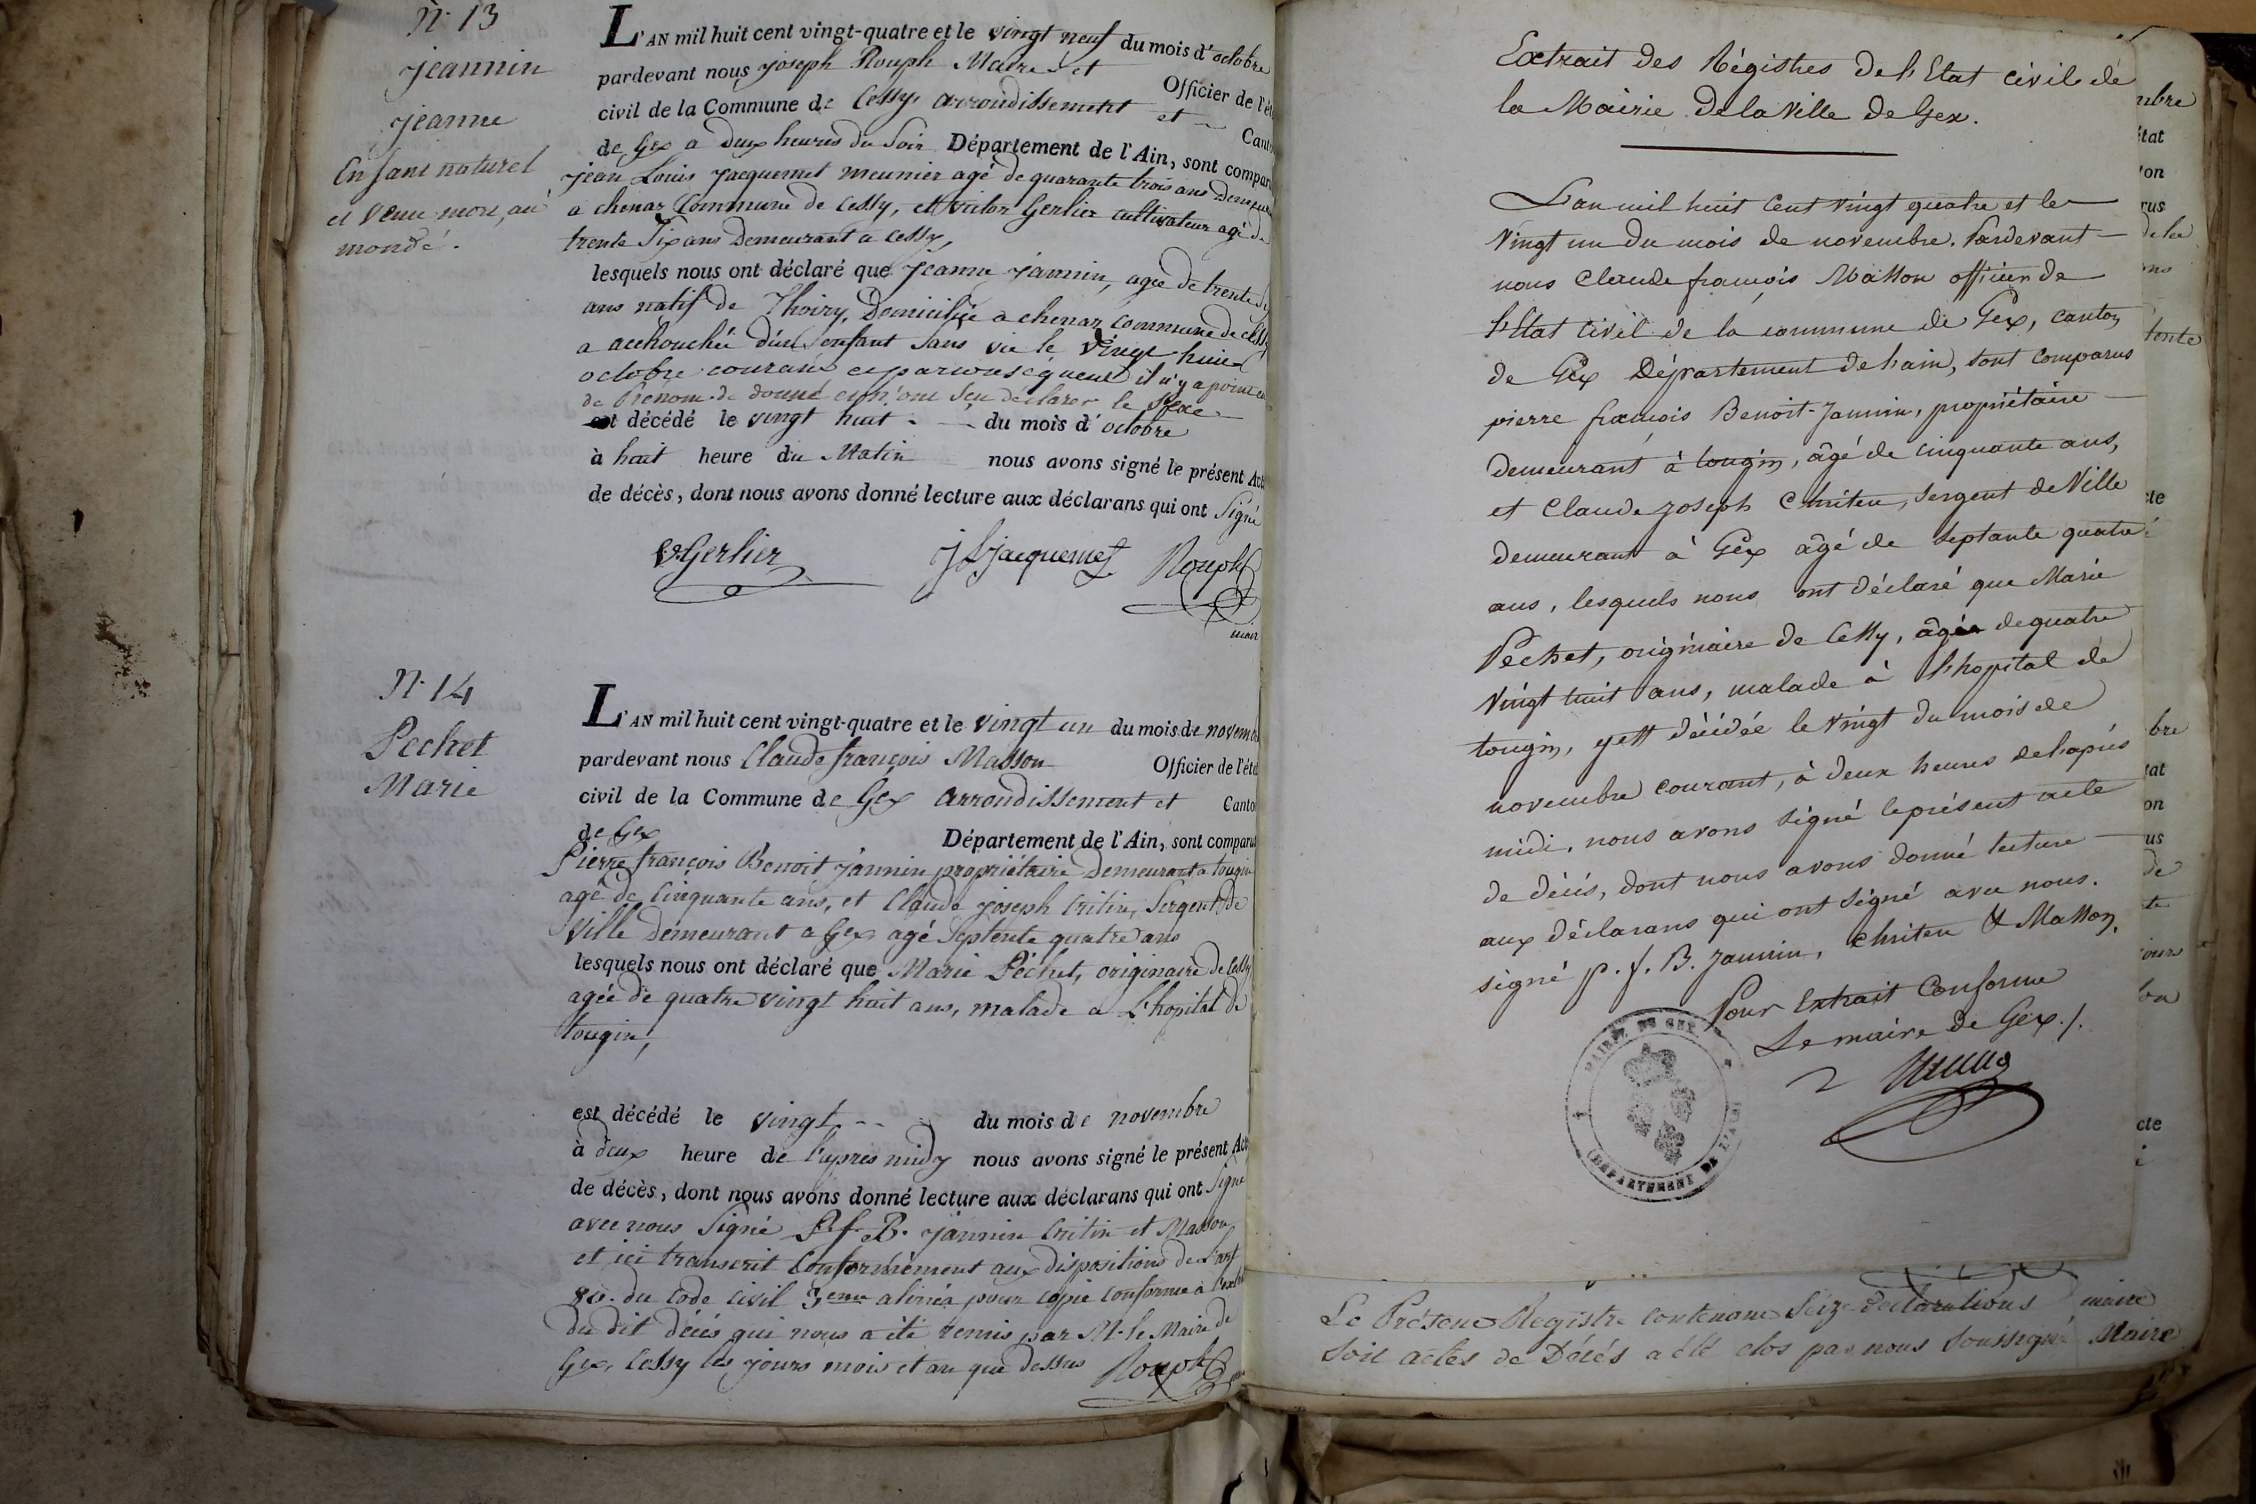 N. 13
Jeannin
Jeanne
Enfant naturel
et venu mort, au
monde.
L'AN mil huit cent vingt-quatre et le vingt neuf du mois d'octobre
pardevant nous Joseph Rouph Maire et Officier de l'ét
civil de la Commune de Cessy, arrondissement et Canto
de Gex a deux heures du Soir Département de l'Ain, sont compar
Jean Louis Jacquemet meunier agé de quarante trois ans Demeura
a chenaz Commune de Cessy, et victor Gerlier cultivateur agé de
trente Six ans Demeurant a Cessy,
lesquels nous ont déclaré que Jeanne Jannin, agée de trente
ans natif de Thoiry, Domiciliée a chenaz commune de Cessy
a acchouchée d'un enfant Sans vie le vingt huit
octobre courant et par consequent il n'y a point eu
de Prénom de donné et n'ont Seu declarer le Sexe
est décédé le vingt huit du mois d'octobre
à huit heure du Matin nous avons signé le présent Act
de décès, dont nous avons donné lecture aux déclarans qui ont Signé
V Gerlier J L Jacquemet Rouph
mair
N. 14
Pechet
Marie
L'AN mil huit cent vingt-quatre et le vingt un du mois de novemb
pardevant nous Claude françois Masson Officier de l'éta
civil de la Commune de Gex arrondissement et Canto
de Gex Département de l'Ain, sont comparu
Pierre françois Benoit Jannin propriétaire Demeurant a tougin
agé de Cinquante ans, et Claude joseph Critin, Sergent de
Ville demeurant a Gex agé Septente quatre ans
lesquels nous ont déclaré que Marie Péchet, originaire de Cessy
agée de quatre vingt huit ans, malade a L'hopital de
tougin,
est décédé le vingt du mois de novembre
à deux heure de l'après midy nous avons signé le présent Act
de décès, dont nous avons donné lecture aux déclarans qui ont Signé
avec nous Signé P. f. B. jannin Critin et Masson
et ici transcrit Conformément aux dispositions de L'art
80. du Code civil 3eme alinéa pour copie conforme a l'extr
du dit décès qui nous a été remis par M. le Maire de
Gex, Cessy les jours mois et an que dessus Rouph
Extrait des Régistres de l'Etat civil de
la Mairie de la Ville de Gex.
L'an mil huit cent vingt quatre et le
vingt un du mois de novembre. Pardevant
nous Claude françois Masson officier de
l'Etat Civil de la commune de Gex, canton
de Gex Département de l'ain, sont comparus
pierre francois Benoit-Jannin, propriétaire
demeurant à tougin, âgé de cinquante ans,
et Claude Joseph Chriten, sergent de Ville
demeurant à Gex âgé de septante quatre
ans, lesquels nous ont déclaré que Marie
Péchet, originaire de Cessy, âgée de quatre
vingt huit ans, malade à l'hopital de
tougin, y est décédée le vingt du mois de
novembre courant, à deux heures de l'après
midi, nous avons signé le présent acte
de décès, dont nous avons donné lecture
aux déclarans qui ont signé avec nous.
signé p. f. B. Jannin, Chriten & Masson.
Pour Extrait Conforme
Le maire de Gex./.
MAIRIE DE GEX
DÉPARTEMENT DE L'AIN
mbre
état
on
rus
de la
ans
tente
cte
bre
tat
on
us
de
te
jours
cte
maire
Le Présent Registre contenant Seize déclarations
soit actes de Décés a été clos par nous soussigné Maire